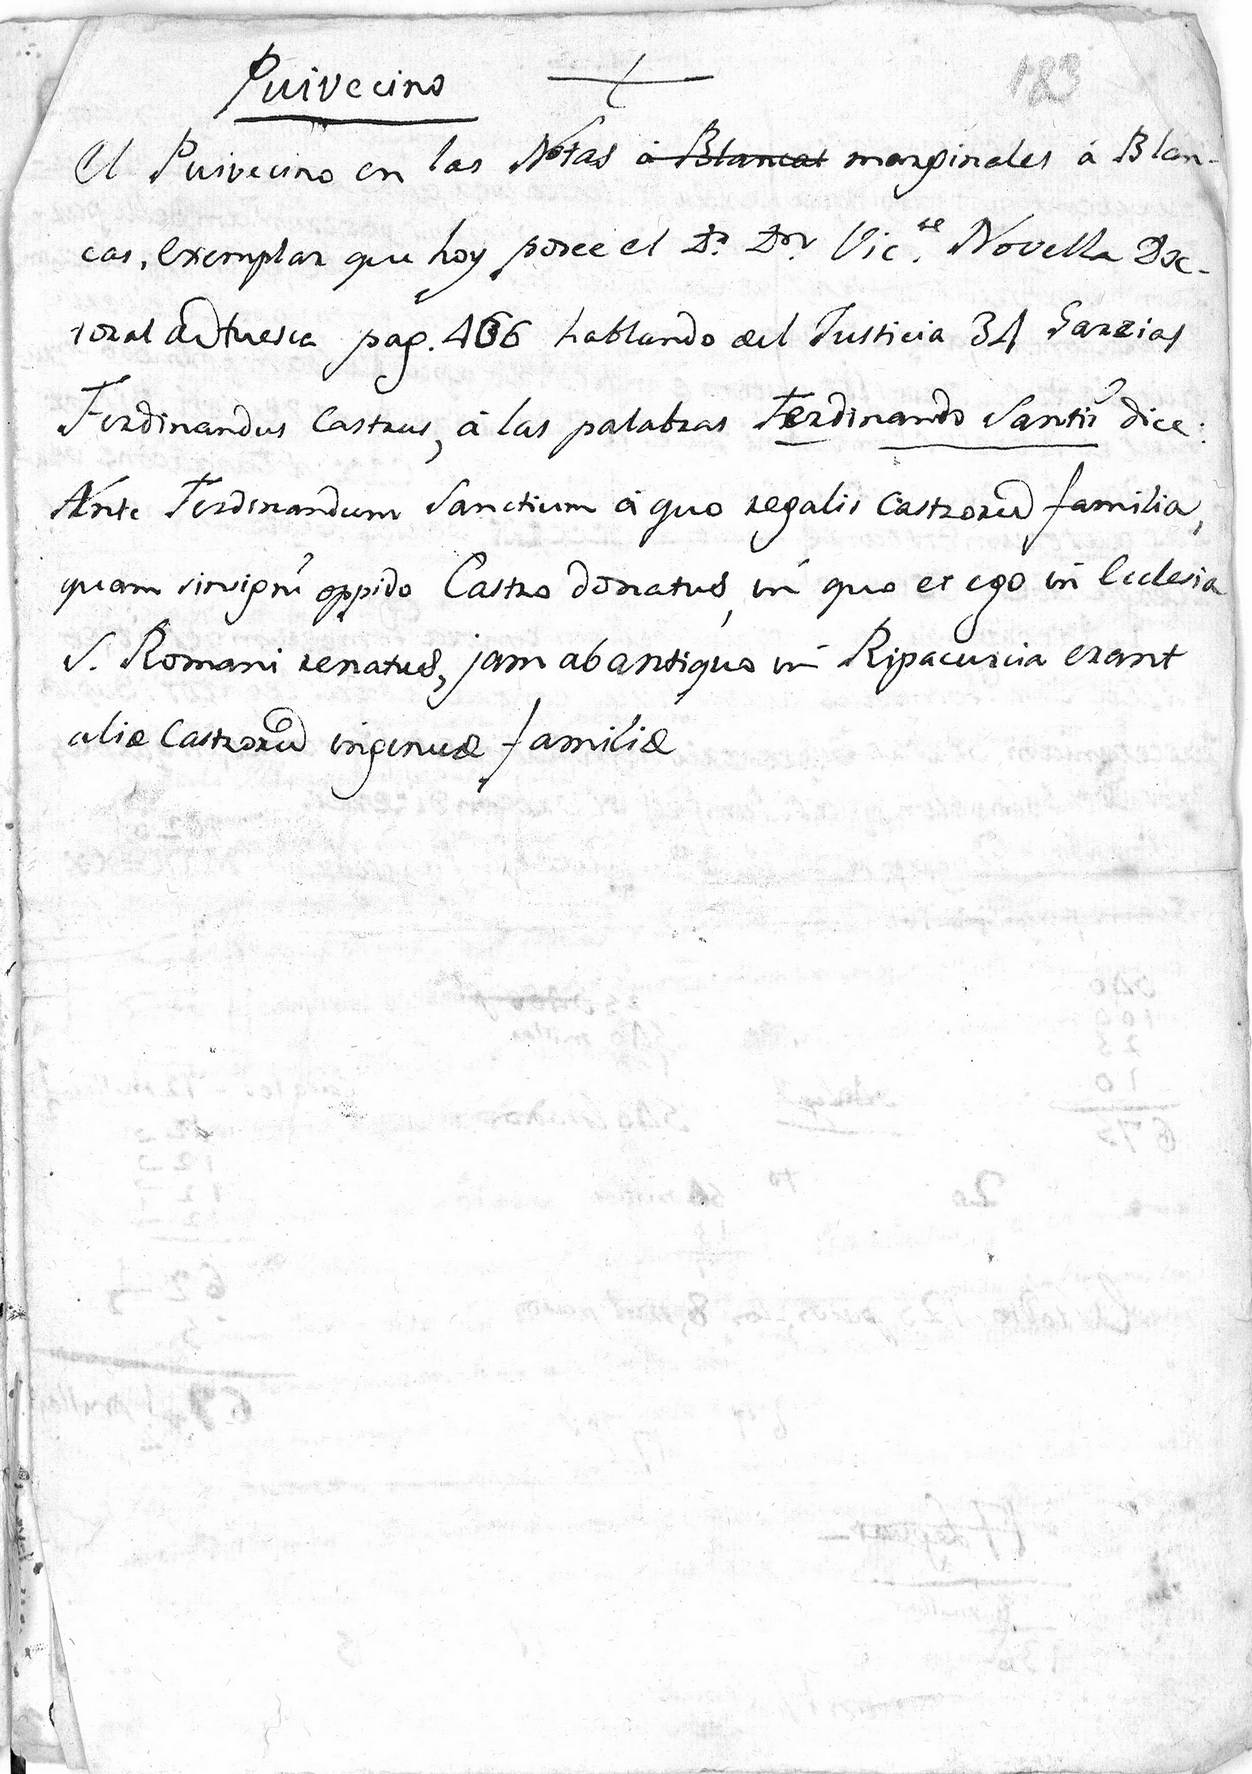 183
Puivecino
El Puivecino en las Notas á Blancas marginales á Blan-
cas, exemplar que hoy posee el Dr. Dn. Vic.te Novella Doc-
toral de Huesca pag. 466 hablando del Justicia 34 Garzias
Ferdinandus Castrus, á las palabras Ferdinando Santii dice:
Ante Ferdinandum Sanctium á quo regalis Castrorū familia,
quam insigni oppido Castro donatus, in quo et ego in Ecclesia
S. Romani renatus, jam ab antiquo in Ripacurcia erant
aliæ Castrorū ingenuæ familiæ